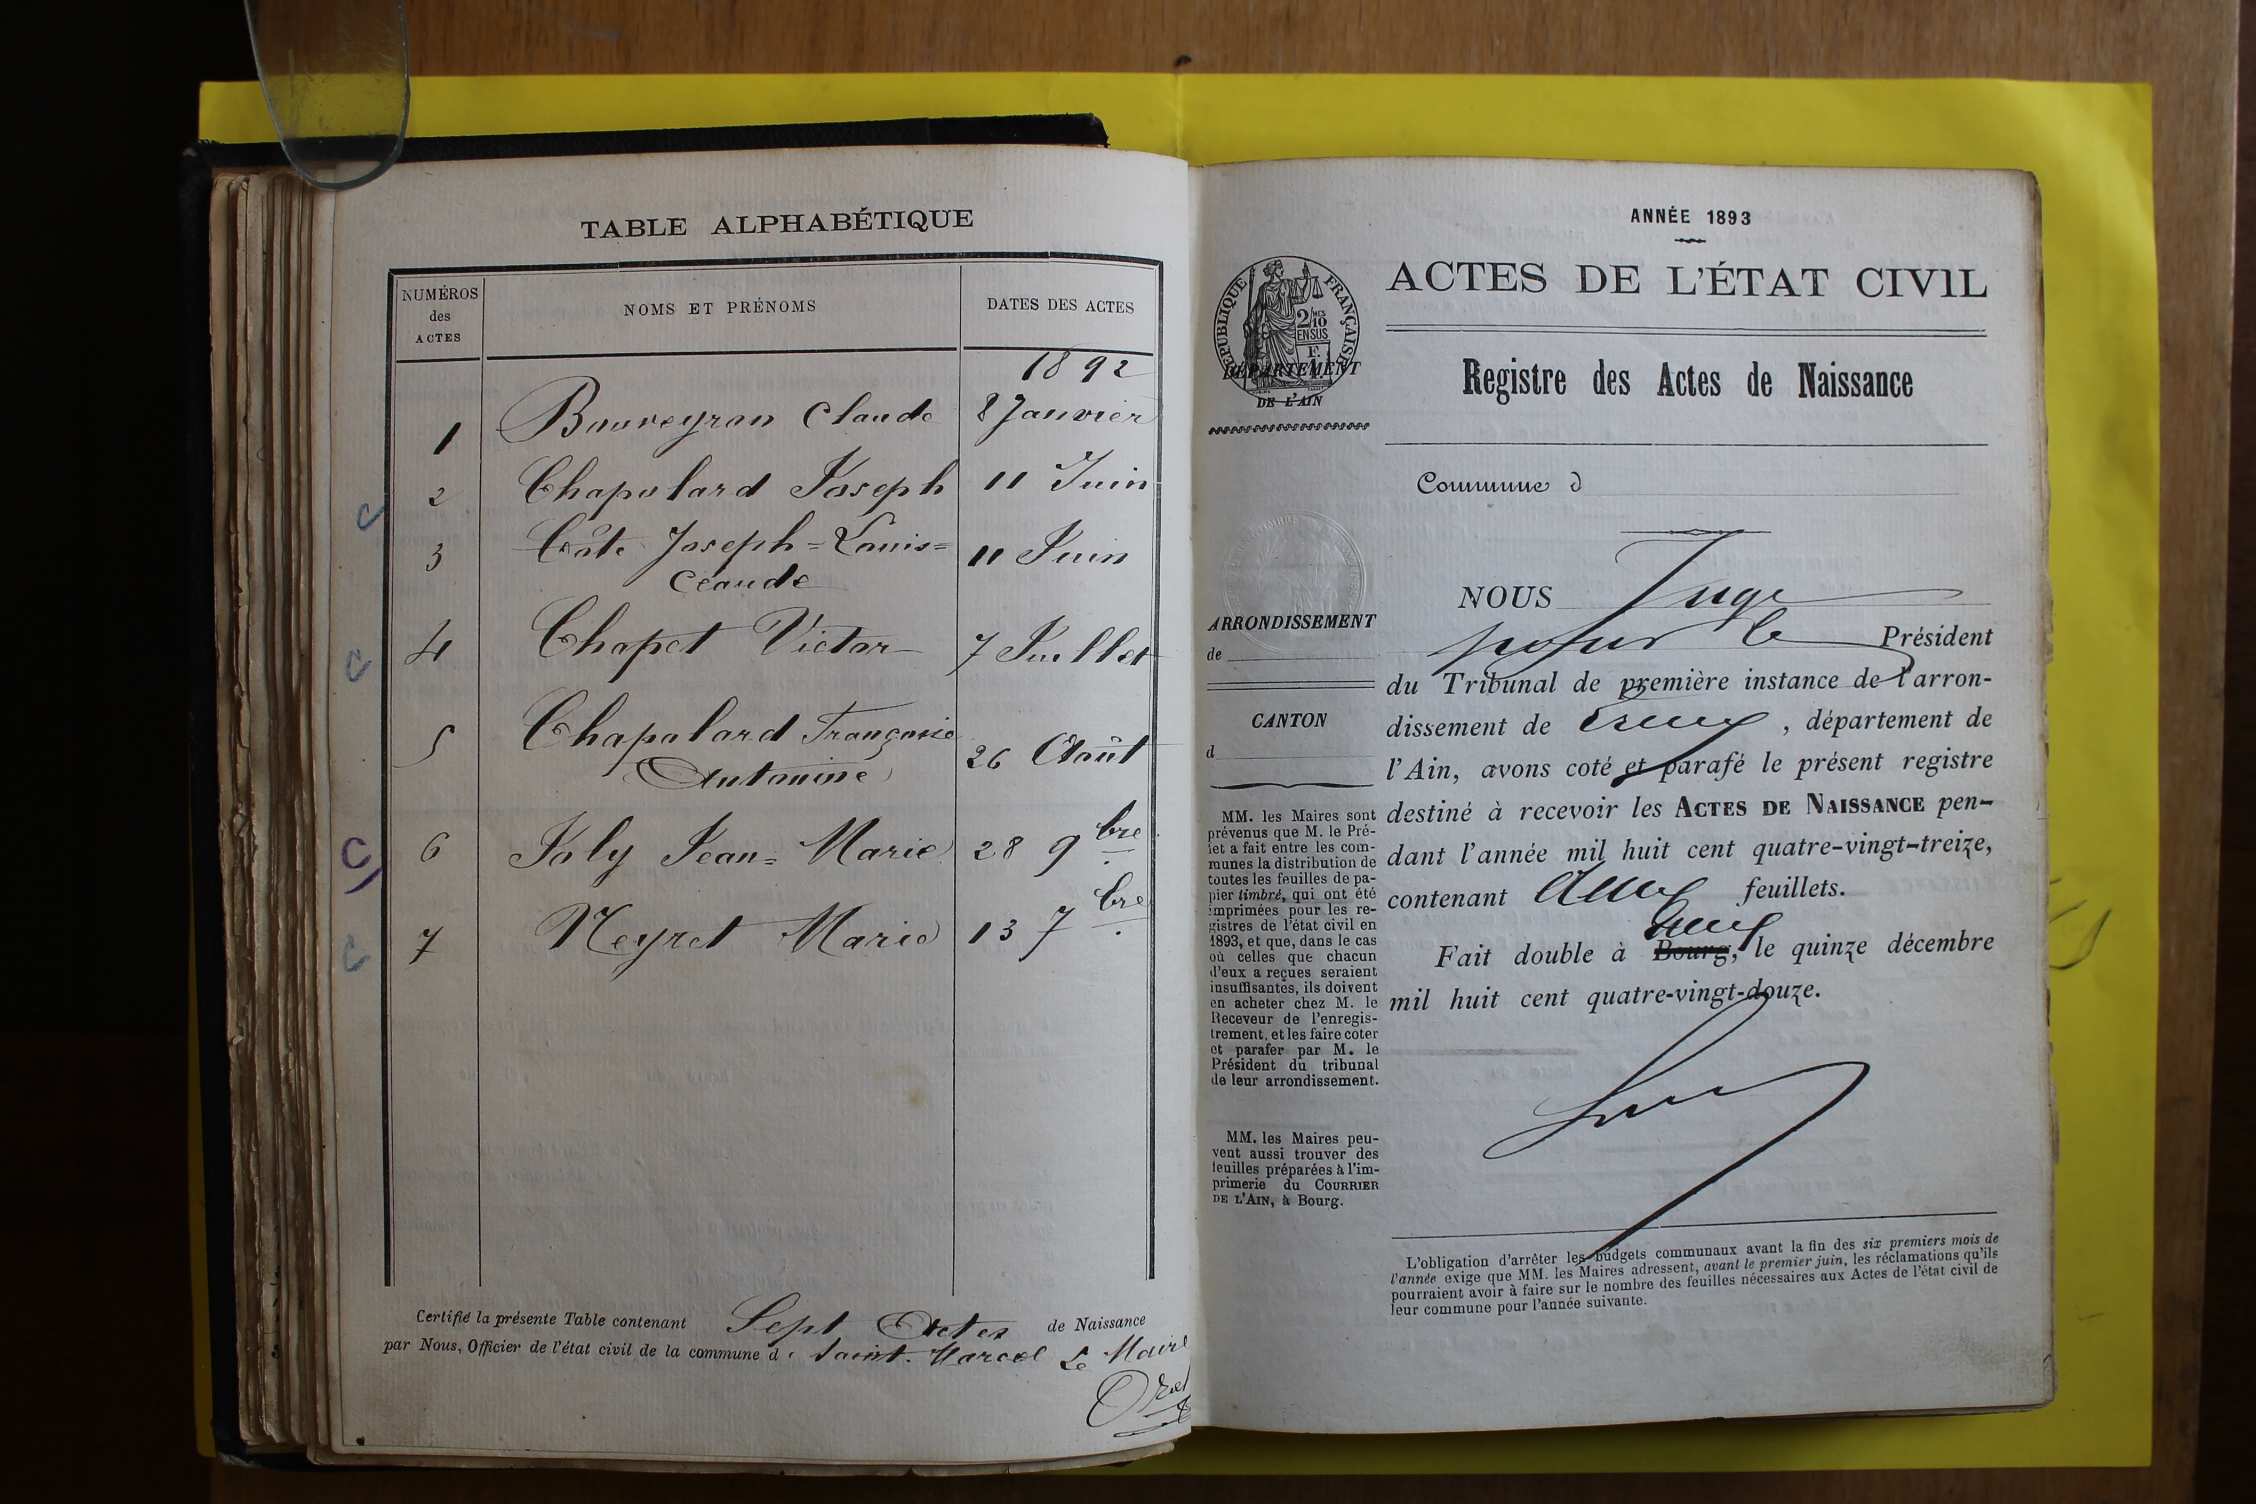 TABLE ALPHABÉTIQUE
NUMÉROS des ACTES NOMS ET PRÉNOMS DATES DES ACTES
1892
1 Bouveyron Claude 8 Janvier
2 Chapolard Joseph 11 Juin
3 Côte Joseph=Louis= 11 Juin
Claude
4 Chapet Victor 7 Juillet
5 Chapolard Françoise 26 Août
Antoinine
6 Joly Jean=Marie 28 9bre
7 Neyret Marie 13 7bre
Certifié la présente Table contenant Sept Actes de Naissance
par Nous, Officier de l'état civil de la commune de Saint-Marcel Le Maire
ANNÉE 1893
ACTES DE L'ÉTAT CIVIL
RÉPUBLIQUE FRANÇAISE
2/10 MES
EN SUS
DÉPARTEMENT
DE L'AIN
Registre des Actes de Naissance
Commune d
ARRONDISSEMENT
de
CANTON
d
MM. les Maires sont
prévenus que M. le Pré-
fet a fait entre les com-
munes la distribution de
toutes les feuilles de pa-
pier timbré, qui ont été
imprimées pour les re-
gistres de l'état civil en
1893, et que, dans le cas
où celles que chacun
d'eux a reçues seraient
insuffisantes, ils doivent
en acheter chez M. le
Receveur de l'enregis-
trement, et les faire coter
et parafer par M. le
Président du tribunal
de leur arrondissement.
MM. les Maires peu-
vent aussi trouver des
feuilles préparées à l'im-
primerie du COURRIER
DE L'AIN, à Bourg.
NOUS Juge
pour le Président
du Tribunal de première instance de l'arron-
dissement de , département de
l'Ain, avons coté et parafé le présent registre
destiné à recevoir les ACTES DE NAISSANCE pen-
dant l'année mil huit cent quatre-vingt-treize,
contenant feuillets.
Fait double à Bourg, le quinze décembre
mil huit cent quatre-vingt-douze.
L'obligation d'arrêter les budgets communaux avant la fin des six premiers mois de
l'année exige que MM. les Maires adressent, avant le premier juin, les réclamations qu'ils
pourraient avoir à faire sur le nombre des feuilles nécessaires aux Actes de l'état civil de
leur commune pour l'année suivante.